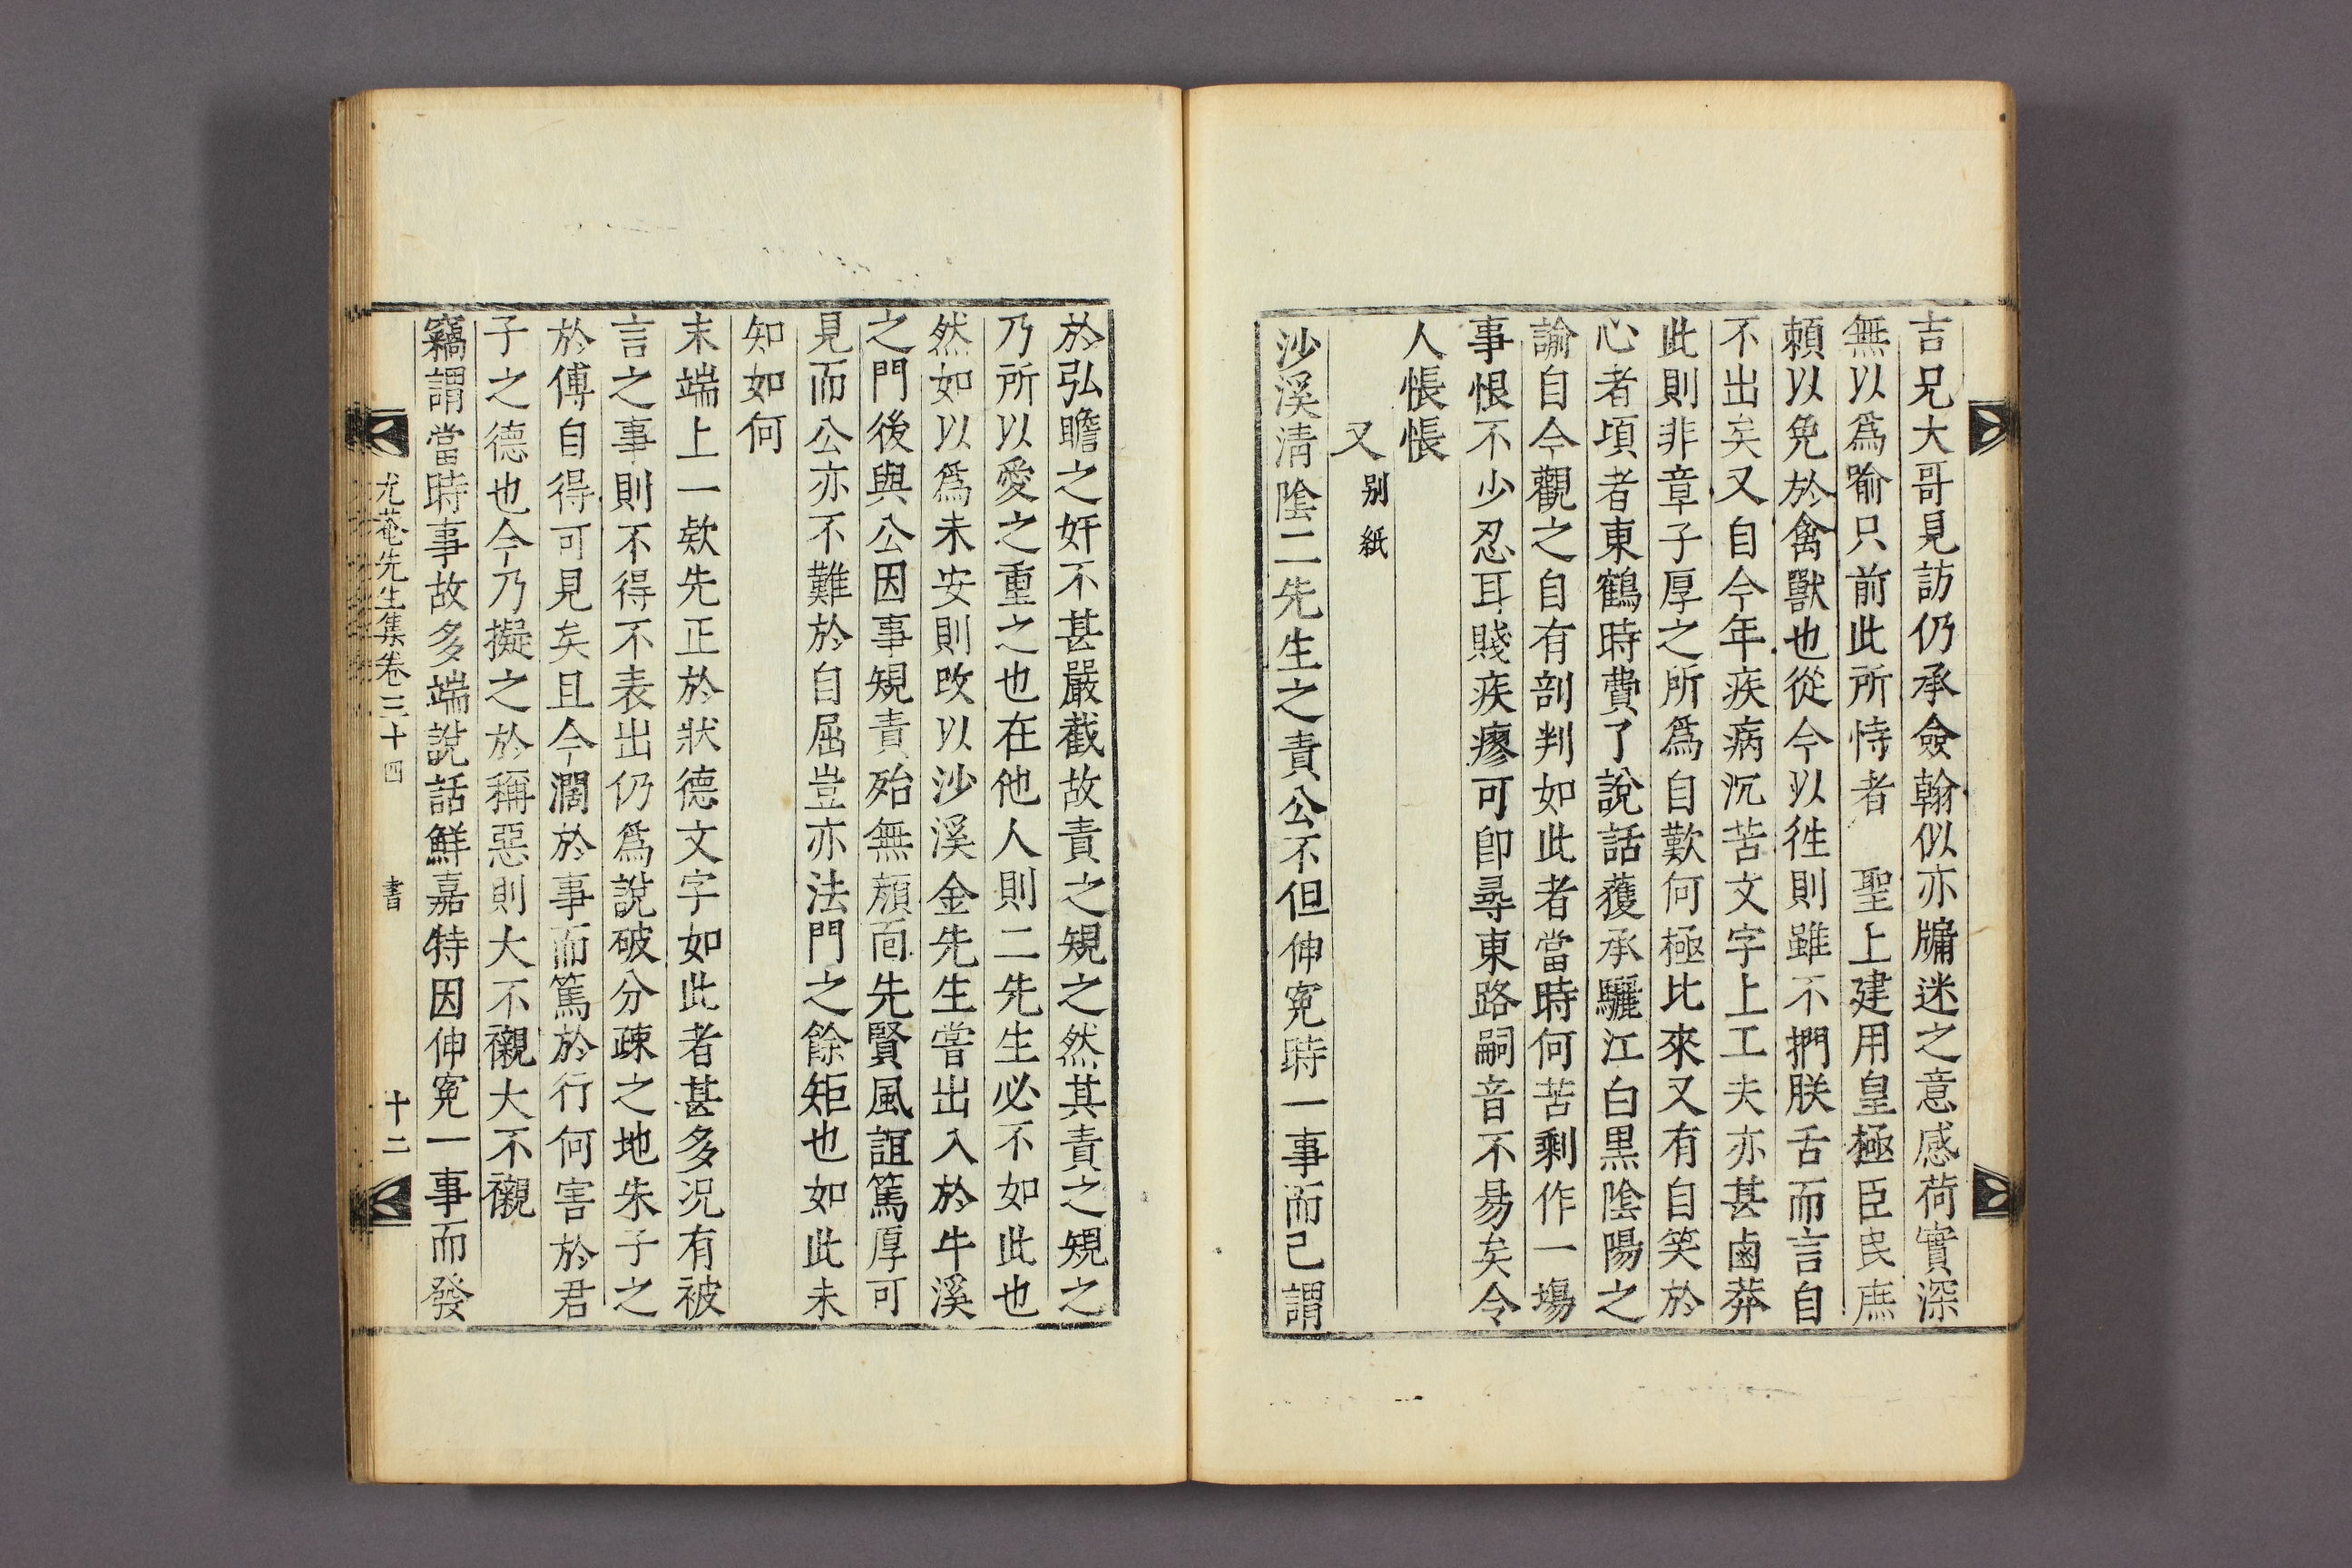 吉兄大哥見訪仍承僉翰似亦牖迷之意感荷實深
無以爲喻只前此所恃者　聖上建用皇極臣民庶
頼以免於禽獸也從今以徃則雖不捫朕舌而言自
不出矣又自今年疾病沉苦文字上工夫亦甚鹵莽
此則非章子厚之所爲自歎何極比來又有自笑於
心者頃者東鶴時費了說話獲承驪江白黒陰陽之
諭自今觀之自有剖判如此者當時何苦剩作一塲
事恨不少忍耳賤疾瘳可卽尋東路嗣音不易矣令
人悵悵
又別紙
沙溪淸陰二先生之責公不但伸寃時一事而已謂
於弘瞻之奸不甚嚴截故責之規之然其責之規之
乃所以愛之重之也在他人則二先生必不如此也
然如以爲未安則改以沙溪金先生嘗出入於牛溪
之門後與公因事規責殆無顔面先賢風誼篤厚可
見而公亦不難於自屈豈亦法門之餘矩也如此未
知如何
末端上一欵先正於狀德文字如此者甚多况有被
言之事則不得不表出仍爲說破分疎之地朱子之
於傅自得可見矣且今濶於事而篤於行何害於君
子之德也今乃擬之於稱惡則大不襯大不襯
竊謂當時事故多端說話鮮嘉特因伸寃一事而發
尤菴先生集卷三十四　書　十二